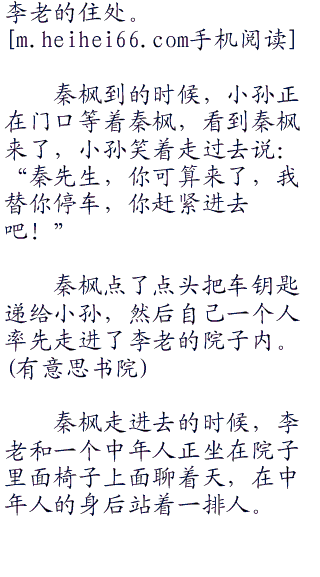 李老的住处。
[m.heihei66.com手机阅读]
秦枫到的时候，小孙正
在门口等着秦枫，看到秦枫
来了，小孙笑着走过去说：
“秦先生，你可算来了，我
替你停车，你赶紧进去
吧！”
秦枫点了点头把车钥匙
递给小孙，然后自己一个人
率先走进了李老的院子内。
(有意思书院)
秦枫走进去的时候，李
老和一个中年人正坐在院子
里面椅子上面聊着天，在中
年人的身后站着一排人。